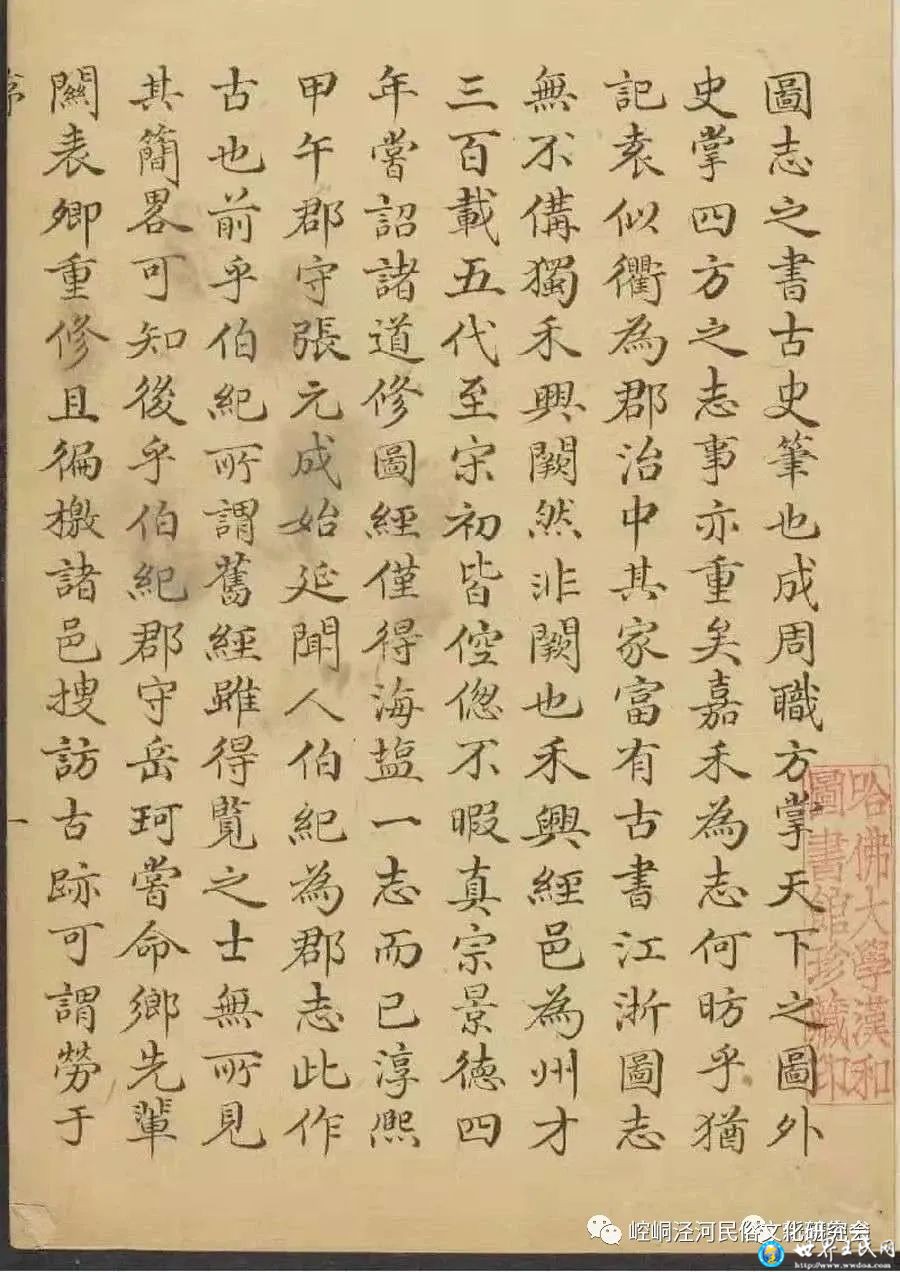 圖志之書古史筆也成周職方掌天下之圖外
史掌四方之志事亦重矣嘉禾為志何昉乎猶
記袁似衢為郡治中其家富有古書江浙圖志
無不備獨禾興闕然非闕也禾興經邑為州才
三百載五代至宋初皆倥偬不暇真宗景德四
年嘗詔諸道修圖經僅得海塩一志而已淳熙
甲午郡守張元成始延聞人伯紀為郡志此作
古也前乎伯紀所謂舊經雖得覧之士無所見
其簡畧可知後乎伯紀郡守岳珂嘗命鄉先輩
關表卿重修且徧檄諸邑搜訪古跡可謂勞于
一
哈佛大學漢和
圖書館珍藏印
崆峒泾河民俗文化研究会
世界王氏网
http://www.wwdoa.com